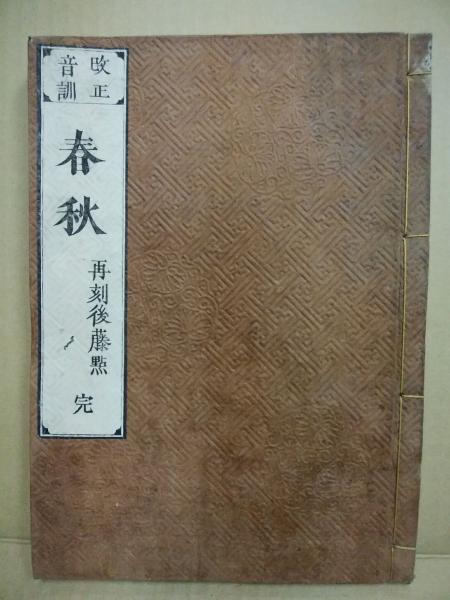 改正
音訓
春秋
再刻後藤點
完